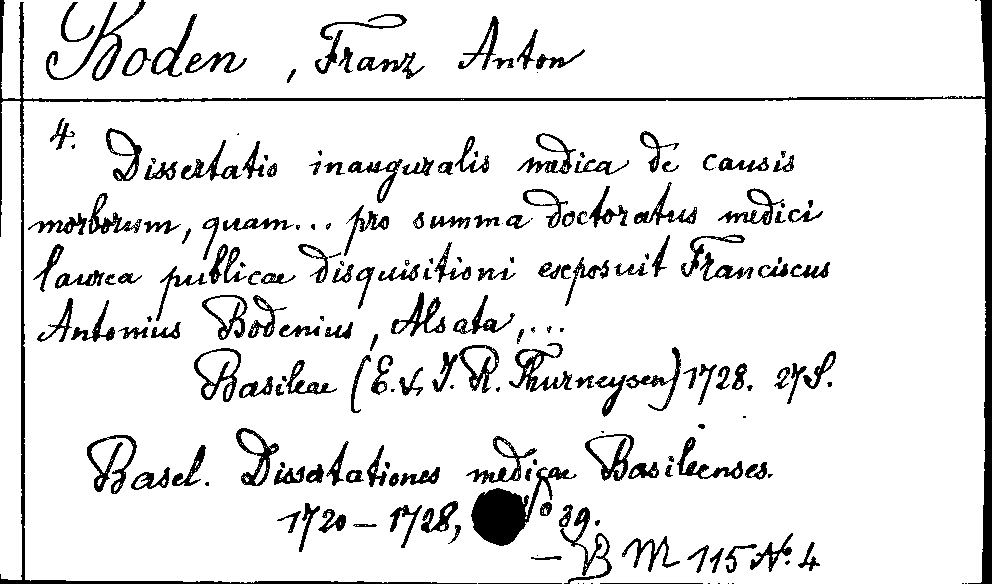 Boden, Franz Anton
4.
Dissertatio inauguralis medica de causis
morborum, quam... pro summa doctoratus medici
laurea publicae disquisitioni exposuit Franciscus
Antonius Bodenius, Alsata,...
Basileae (E. & J. R. Thurneysen) 1728. 27 S.
Basel. Dissertationes medicae Basileenses.
1720–1728, No 39.
– B M 115 No. 4